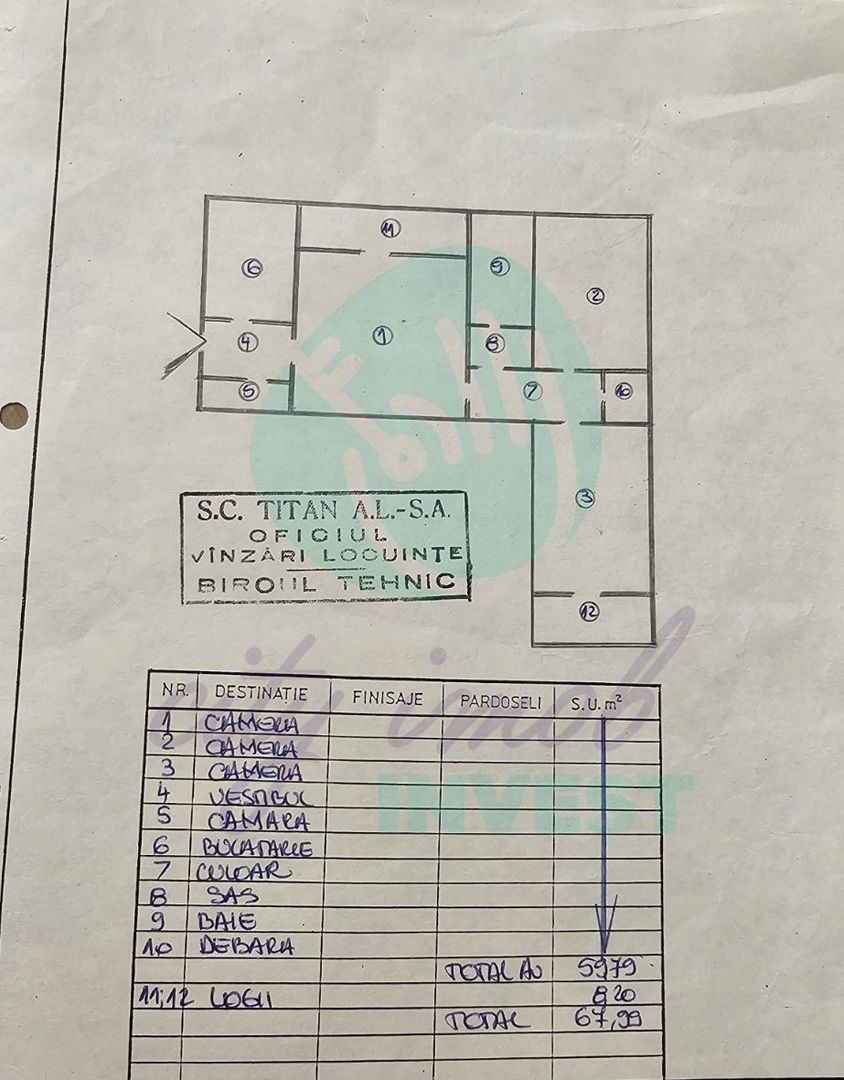 11
6
9
2
4
1
8
5
7
10
3
S.C. TITAN A.L.-S.A.
OFICIUL
VÎNZĂRI LOCUINȚE
BIROUL TEHNIC
12
city imob
INVEST
NR. DESTINAȚIE FINISAJE PARDOSELI S.U. m²
1 CAMERA
2 CAMERA
3 CAMERA
4 VESTIBUL
5 CAMARA
6 BUCATARIE
7 CULOAR
8 SAS
9 BAIE
10 DEBARA
TOTAL AU 59,79
11;12 LOGII 8,20
TOTAL 67,99